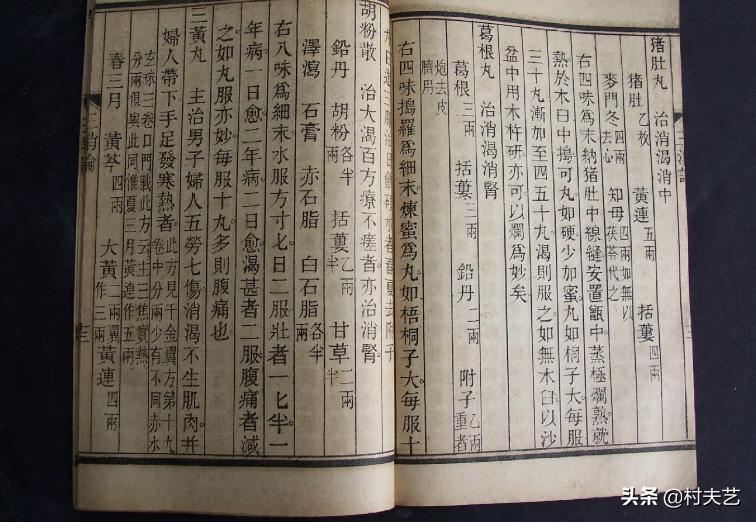 猪肚丸　治消渴消中
猪肚乙枚　黃連五兩　括蔞四兩
麥門冬四兩去心　知母四兩如無以茯苓代之
右四味爲末納猪肚中線縫安置甑中蒸極爛熟就
熱於木臼中搗可丸如硬少加蜜丸如桐子大每服
三十丸漸加至四五十丸渴則服之如無木臼以沙
盆中用木杵研亦可以爛爲妙矣
葛根丸　治消渴消腎
葛根三兩　括蔞三兩　鉛丹二兩　附子乙兩重者
炮去皮臍用
右四味搗羅爲細末煉蜜爲丸如梧桐子大每服十
春夏去附子
胡粉散　治大渴百方療不瘥者亦治消腎
鉛丹　胡粉各半兩　括蔞乙兩半　甘草二兩半
澤瀉　石膏　赤石脂　白石脂各半兩
右八味爲細末水服方寸匕日二服壯者一匕半一
年病一日愈二年病二日愈渴甚者二服腹痛者減
之如丸服亦妙每服十丸多則腹痛也
三黃丸　主治男子婦人五勞七傷消渴不生肌肉并
婦人帶下手足發寒熱者此方見千金翼方第十九卷中分兩少有不同亦水
玄珠三卷口門載此方云主三焦實熱分兩俱與此同惟夏三月黃連作五兩
春三月　黃芩四兩　大黃二兩翼作三兩　黃連四兩
三消論
头条 @村夫艺